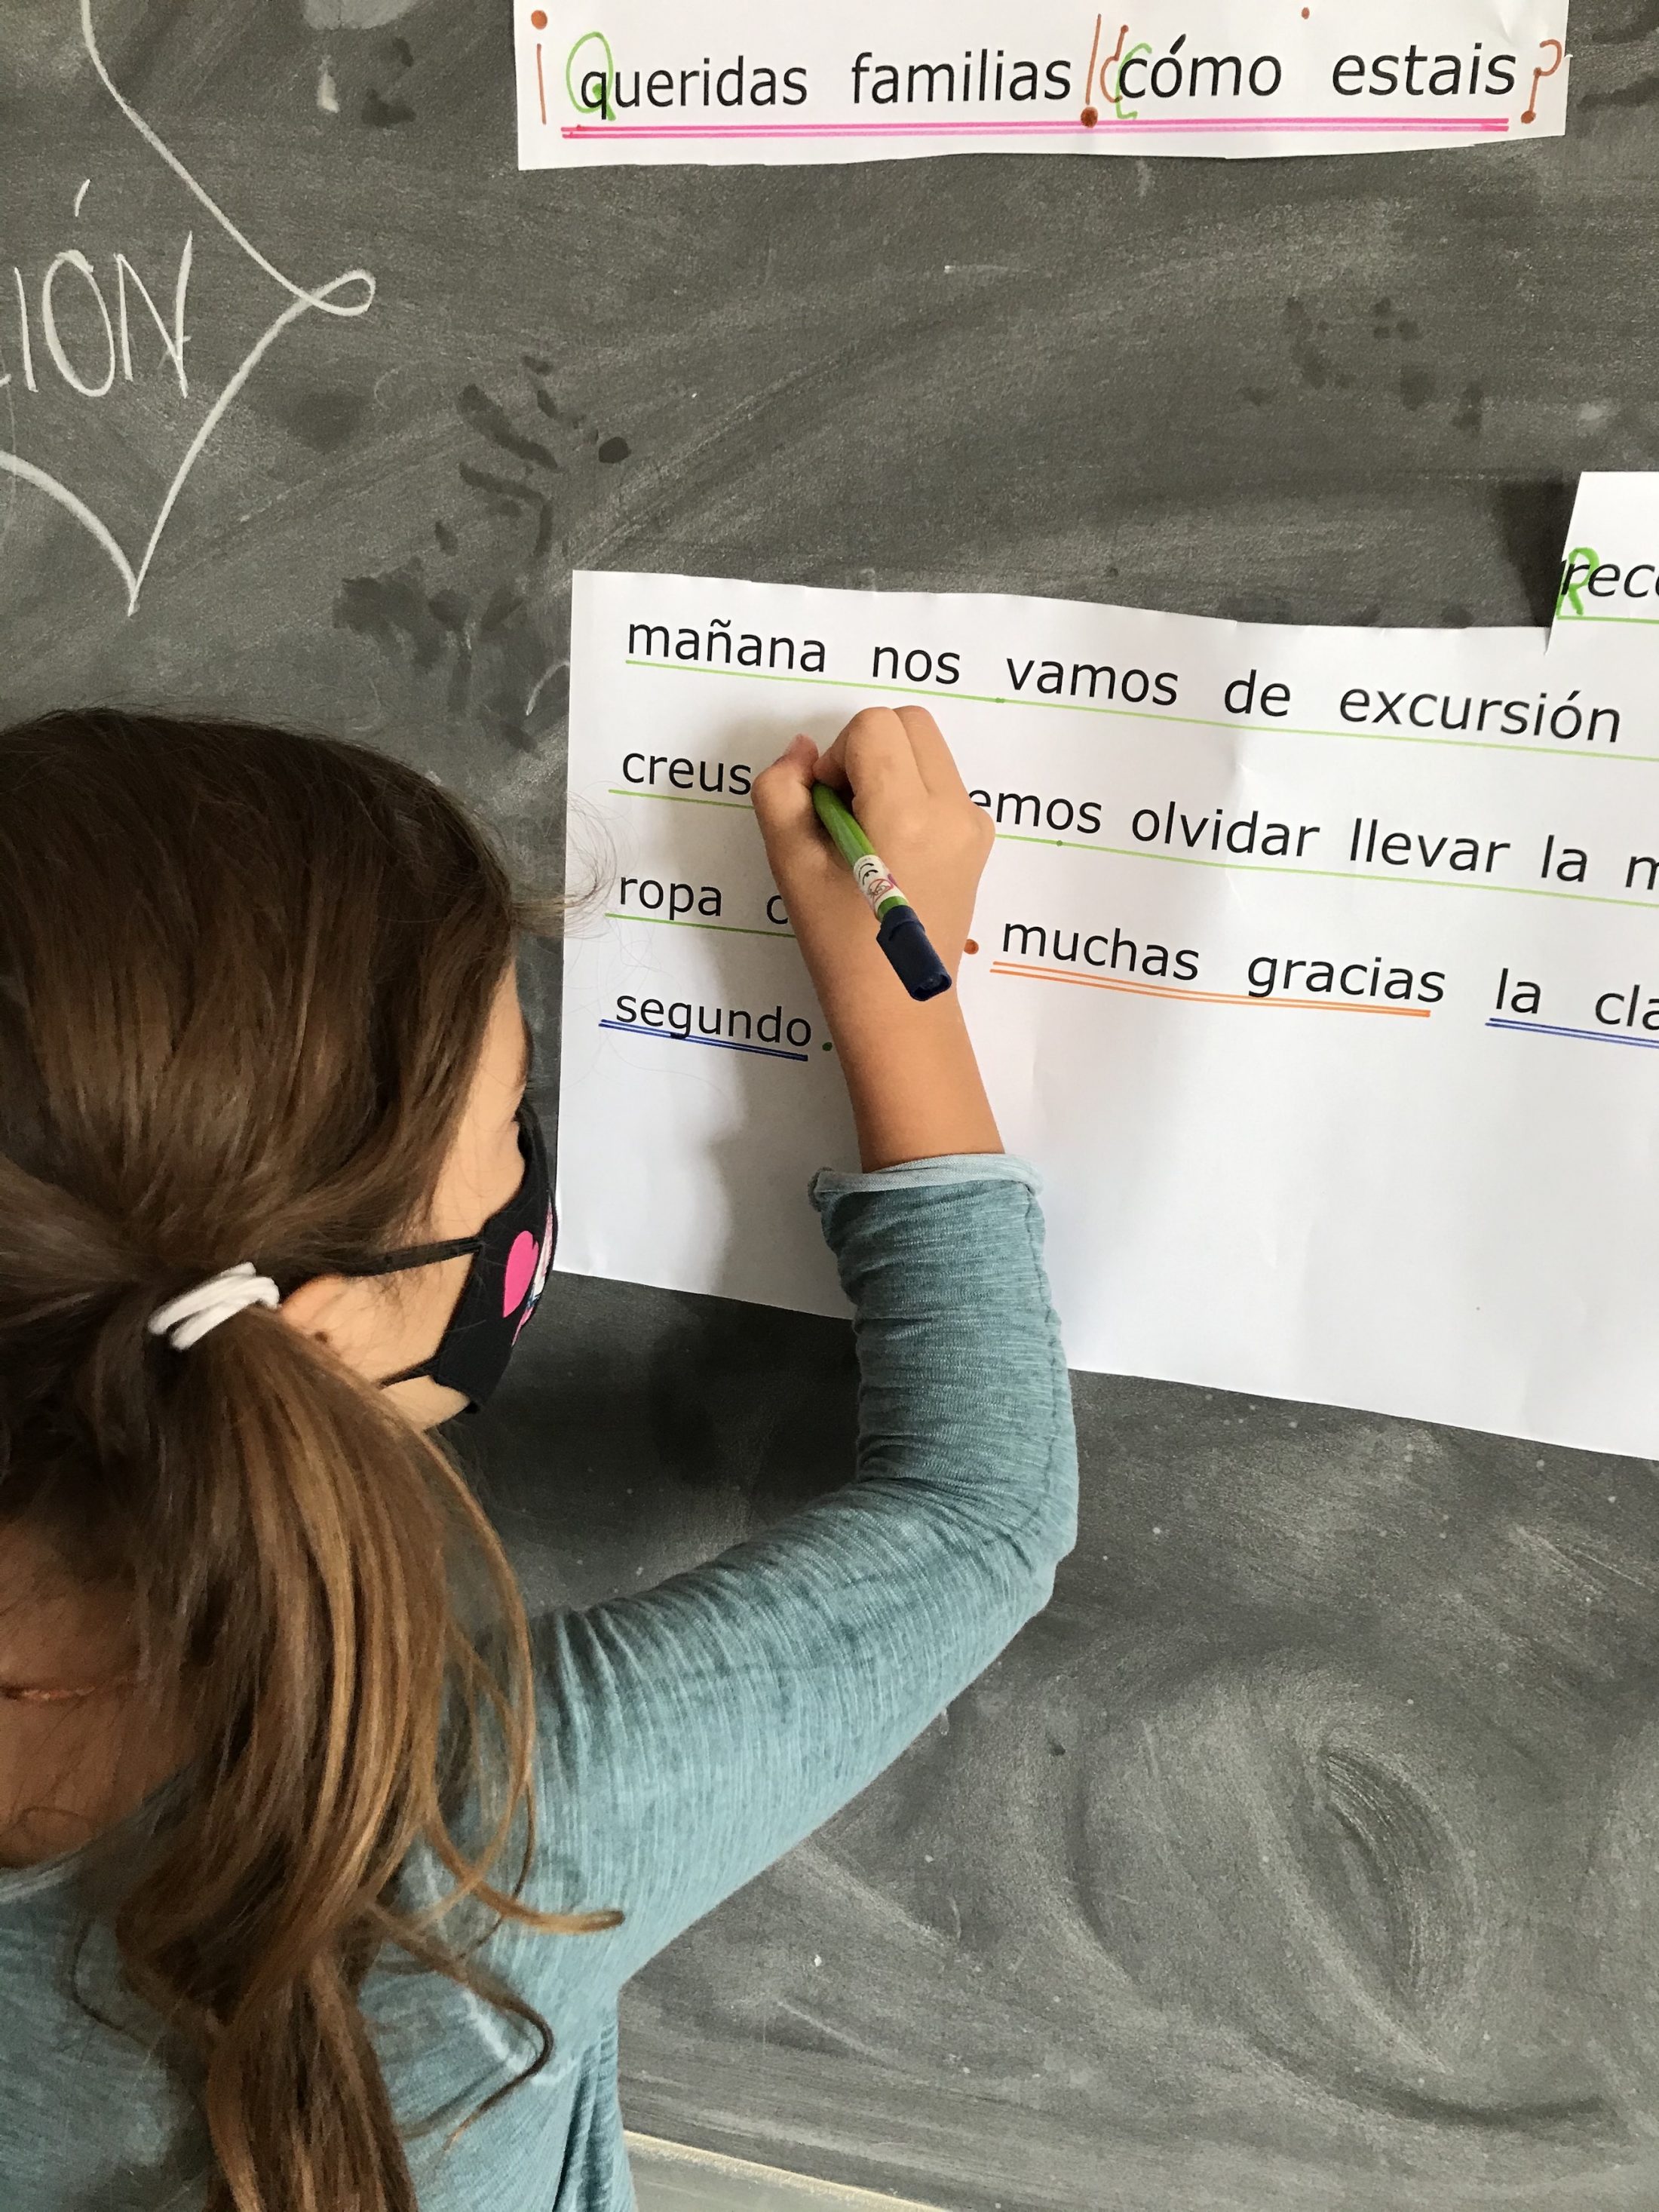 ¡Queridas familias! ¿Cómo estais?
IÓN
mañana nos vamos de excursión
creus olvidar llevar la
ropa muchas gracias la
segundo.